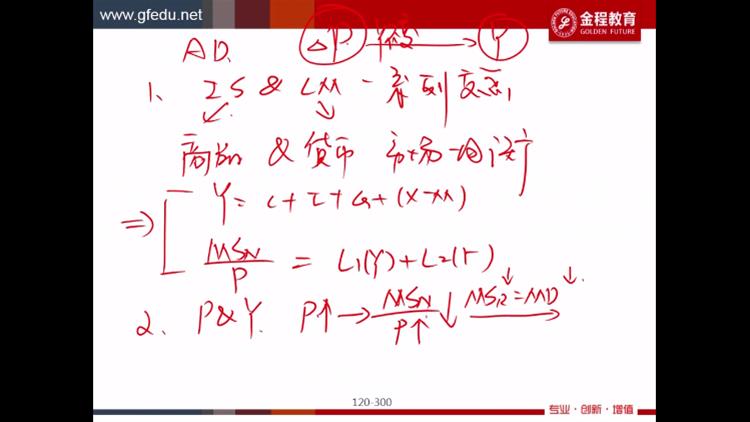 www.gfedu.net
金程教育
GOLDEN FUTURE
AD. ΔP Y
1、IS & LM 一系列交点
商品 & 货币 市场均衡
⇒ Y = C + I + G + (X-M)
MSN/P = L1(Y) + L2(r)
2、P&Y. P↑ → MSN/P↑ ↓ MSR↓=MD↓
120-300
专业·创新·增值